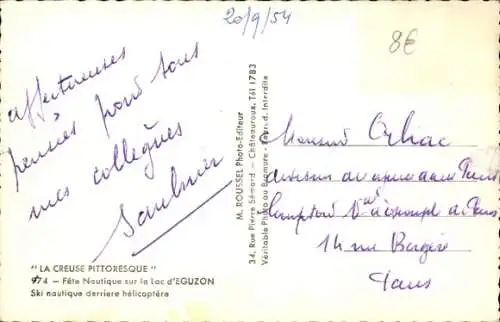 20/9/54
8€
affectueuses
pensées pour tous
mes collègues
Saulnier
"LA CREUSE PITTORESQUE"
974 — Fête Nautique sur le Lac d'EGUZON
Ski nautique derriere hélicoptère
M. ROUSSEL Photo-Editeur
34, Rue Pierre Sémard — Châteauroux, Tél 1783
Véritable Photo au Bromure - Reprod. Interdite
Monsieur
Comptoir d'escompte de Paris
14 rue Bergère
Paris